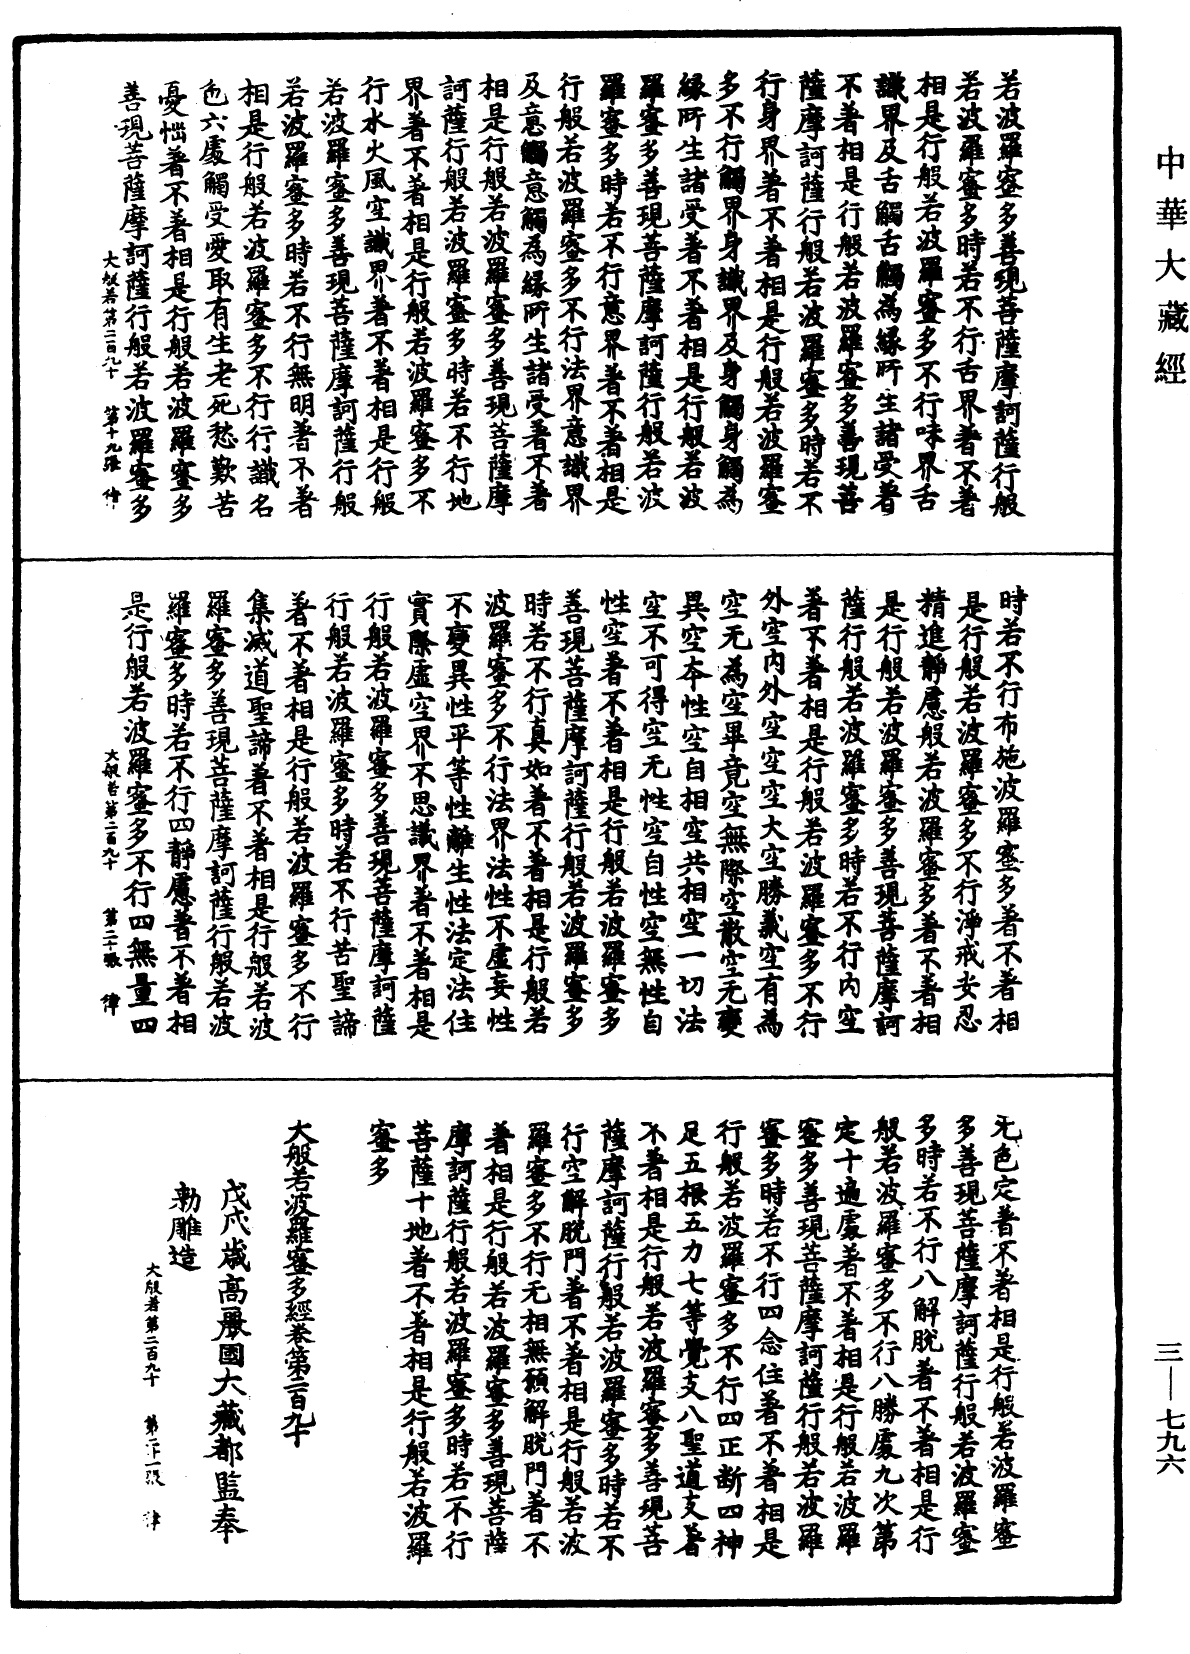 中華大藏經
若波羅蜜多善現菩薩摩訶薩行般
若波羅蜜多時若不行舌界著不著
相是行般若波羅蜜多不行味界舌
識界及舌觸舌觸為緣所生諸受著
不著相是行般若波羅蜜多善現菩
薩摩訶薩行般若波羅蜜多時若不
行身界著不著相是行般若波羅蜜
多不行觸界身識界及身觸身觸為
緣所生諸受著不著相是行般若波
羅蜜多善現菩薩摩訶薩行般若波
羅蜜多時若不行意界著不著相是
行般若波羅蜜多不行法界意識界
及意觸意觸為緣所生諸受著不著
相是行般若波羅蜜多善現菩薩摩
訶薩行般若波羅蜜多時若不行地
界著不著相是行般若波羅蜜多不
行水火風空識界著不著相是行般
若波羅蜜多善現菩薩摩訶薩行般
若波羅蜜多時若不行無明著不著
相是行般若波羅蜜多不行行識名
色六處觸受愛取有生老死愁歎苦
憂惱著不著相是行般若波羅蜜多
善現菩薩摩訶薩行般若波羅蜜多
大般若第二百九十 第十九張 律
時若不行布施波羅蜜多著不著相
是行般若波羅蜜多不行淨戒安忍
精進靜慮般若波羅蜜多著不著相
是行般若波羅蜜多善現菩薩摩訶
薩行般若波羅蜜多時若不行內空
著不著相是行般若波羅蜜多不行
外空內外空空空大空勝義空有為
空无為空畢竟空無際空散空无變
異空本性空自相空共相空一切法
空不可得空无性空自性空無性自
性空著不著相是行般若波羅蜜多
善現菩薩摩訶薩行般若波羅蜜多
時若不行真如著不著相是行般若
波羅蜜多不行法界法性不虛妄性
不變異性平等性離生性法定法住
實際虛空界不思議界著不著相是
行般若波羅蜜多善現菩薩摩訶薩
行般若波羅蜜多時若不行苦聖諦
著不著相是行般若波羅蜜多不行
集滅道聖諦著不著相是行般若波
羅蜜多善現菩薩摩訶薩行般若波
羅蜜多時若不行四靜慮著不著相
是行般若波羅蜜多不行四無量四
大般若第二百九十 第二十張 律
无色定著不著相是行般若波羅蜜
多善現菩薩摩訶薩行般若波羅蜜
多時若不行八解脫著不著相是行
般若波羅蜜多不行八勝處九次第
定十遍處著不著相是行般若波羅
蜜多善現菩薩摩訶薩行般若波羅
蜜多時若不行四念住著不著相是
行般若波羅蜜多不行四正斷四神
足五根五力七等覺支八聖道支著
不著相是行般若波羅蜜多善現菩
薩摩訶薩行般若波羅蜜多時若不
行空解脫門著不著相是行般若波
羅蜜多不行无相無願解脫門著不
著相是行般若波羅蜜多善現菩薩
摩訶薩行般若波羅蜜多時若不行
菩薩十地著不著相是行般若波羅
蜜多
大般若波羅蜜多經卷第二百九十
戊戌歲高麗國大藏都監奉
勑雕造
大般若第二百九十 第二十一張 律
三—七九六